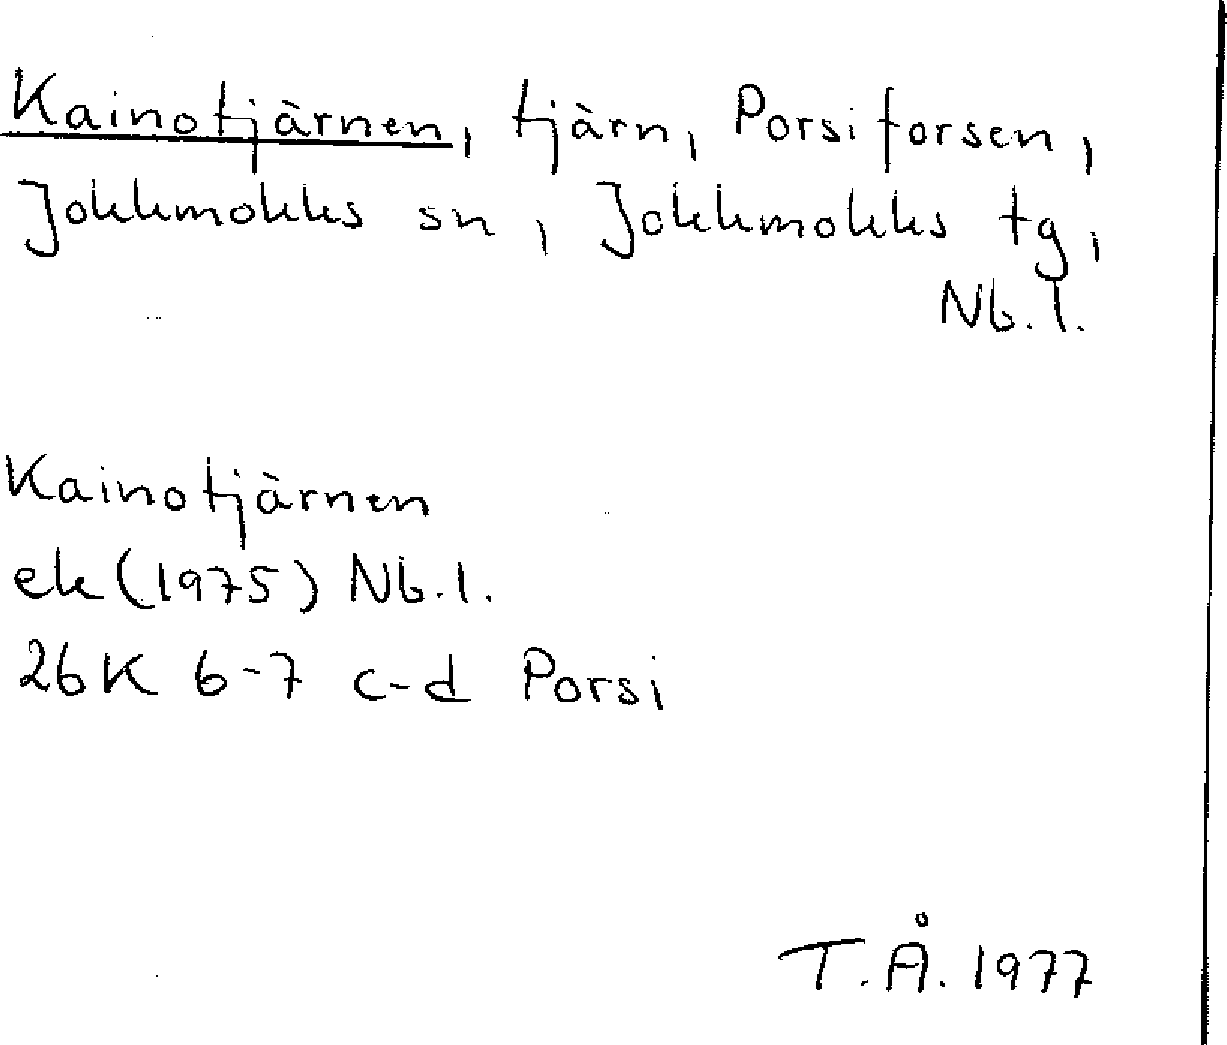 Kainotjärnen, tjärn, Porsiforsen,
Jokkmokks sn, Jokkmokks tg,
Nb. l.
Kainotjärnen
ek (1975) Nb. l.
26K 6-7 c-d Porsi
T. Å. 1977